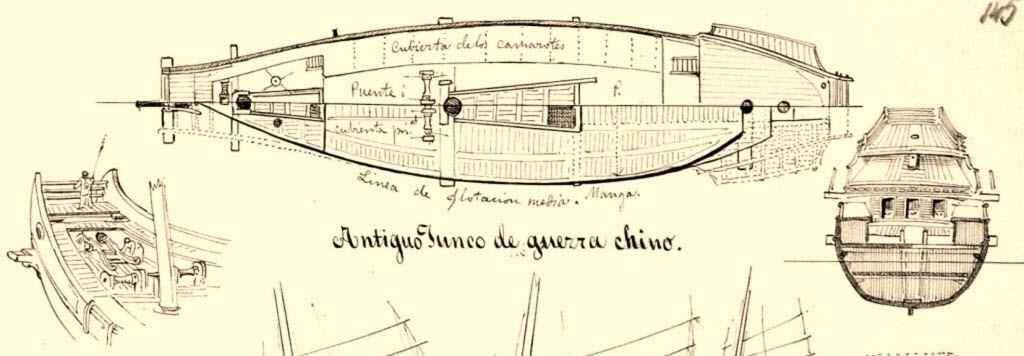 145
Cubierta de los camarotes
Puente
P.
cubierta pral
Linea de flotacion media. Manga.
Antiguo Junco de guerra chino.